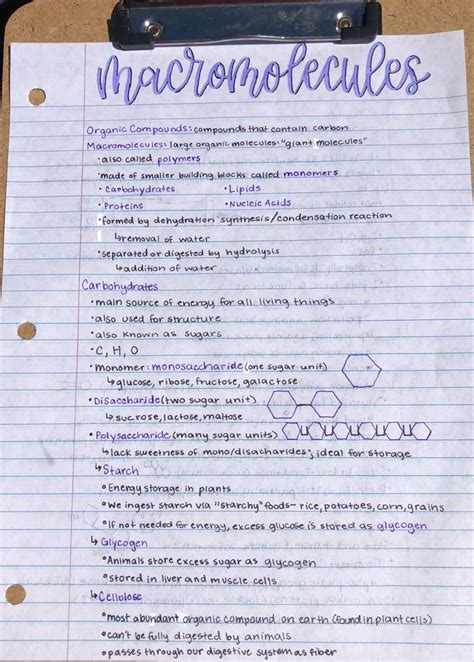 macromolecules
Organic Compounds: compounds that contain carbon
Macromolecules: large organic molecules: "giant molecules"
• also called polymers
• made of smaller building blocks called monomers
• Carbohydrates • Lipids
• Proteins • Nucleic Acids
• formed by dehydration synthesis/condensation reaction
↳ removal of water
• separated or digested by hydrolysis
↳ addition of water
Carbohydrates
• main source of energy for all living things
• also used for structure
• also known as sugars
• C, H, O
• Monomer: monosaccharide (one sugar unit)
↳ glucose, ribose, fructose, galactose
• Disaccharide (two sugar unit)
↳ sucrose, lactose, maltose
• Polysaccharide (many sugar units)
↳ lack sweetness of mono/disacharides; ideal for storage
↳ Starch
• Energy storage in plants
• We ingest starch via "starchy" foods- rice, potatoes, corn, grains
• If not needed for energy, excess glucose is stored as glycogen
↳ Glycogen
• Animals store excess sugar as glycogen
• stored in liver and muscle cells
↳ Cellolose
• most abundant organic compound on earth (found in plant cells)
• can't be fully digested by animals
• passes through our digestive system as fiber